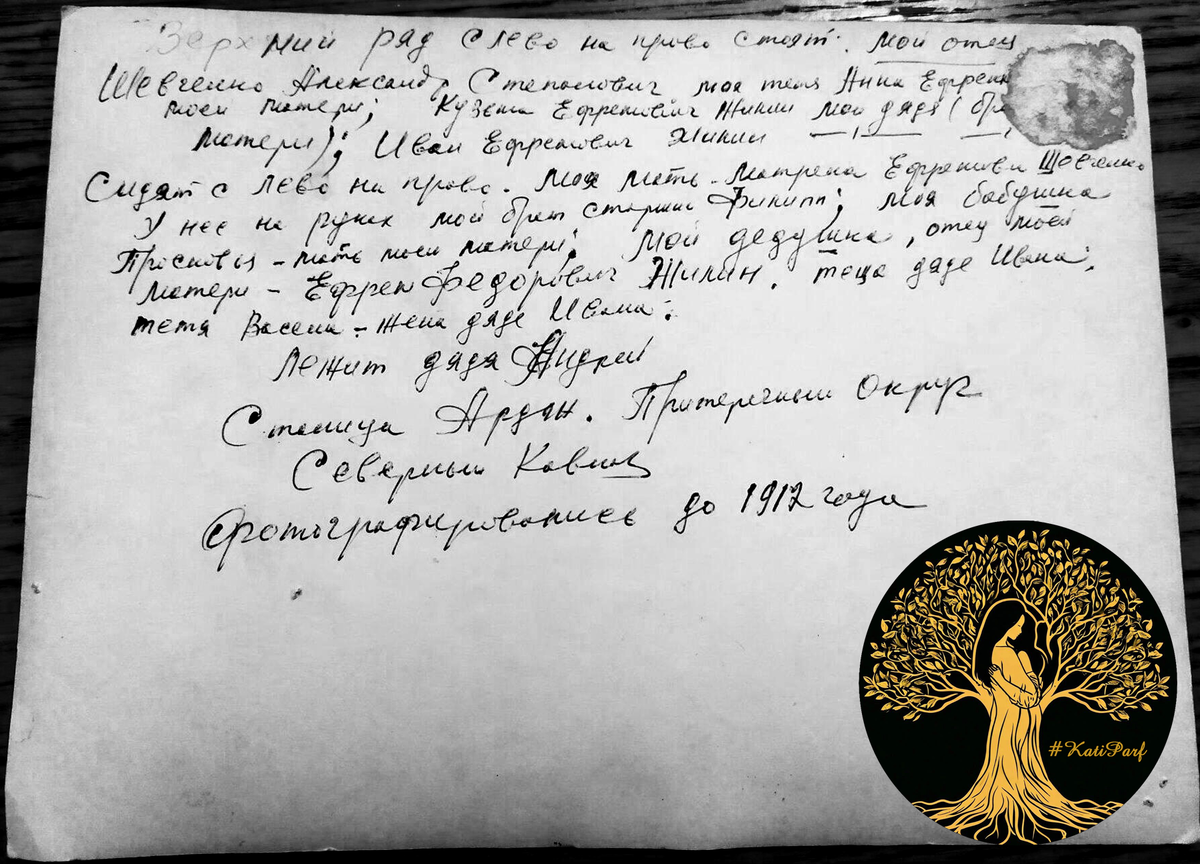 Верхний ряд слево на право стоят: мой отец
Шевченко Александр Степанович моя тетя Анна
моей матери; Кузьма Ефремович Жилин мой дядя (
матери); Иван Ефремович Жилин — „ —
Сидят с лево на право. Моя мать - Матрена Ефремовн Шевченко
У нее на руках мой брат старший Филипп; моя бабушка
Просковья - мать моей матери; Мой дедушка, отец моей
матери - Ефрем Федорович Жилин. теща дяде Ивана;
тетя Васена - жена дяде Ивана:
Лежит дядя Андрей
Станица Ардон. Притеречный Округ
Северный Кавказ
Фотографировались до 1912 года
#KatiParf